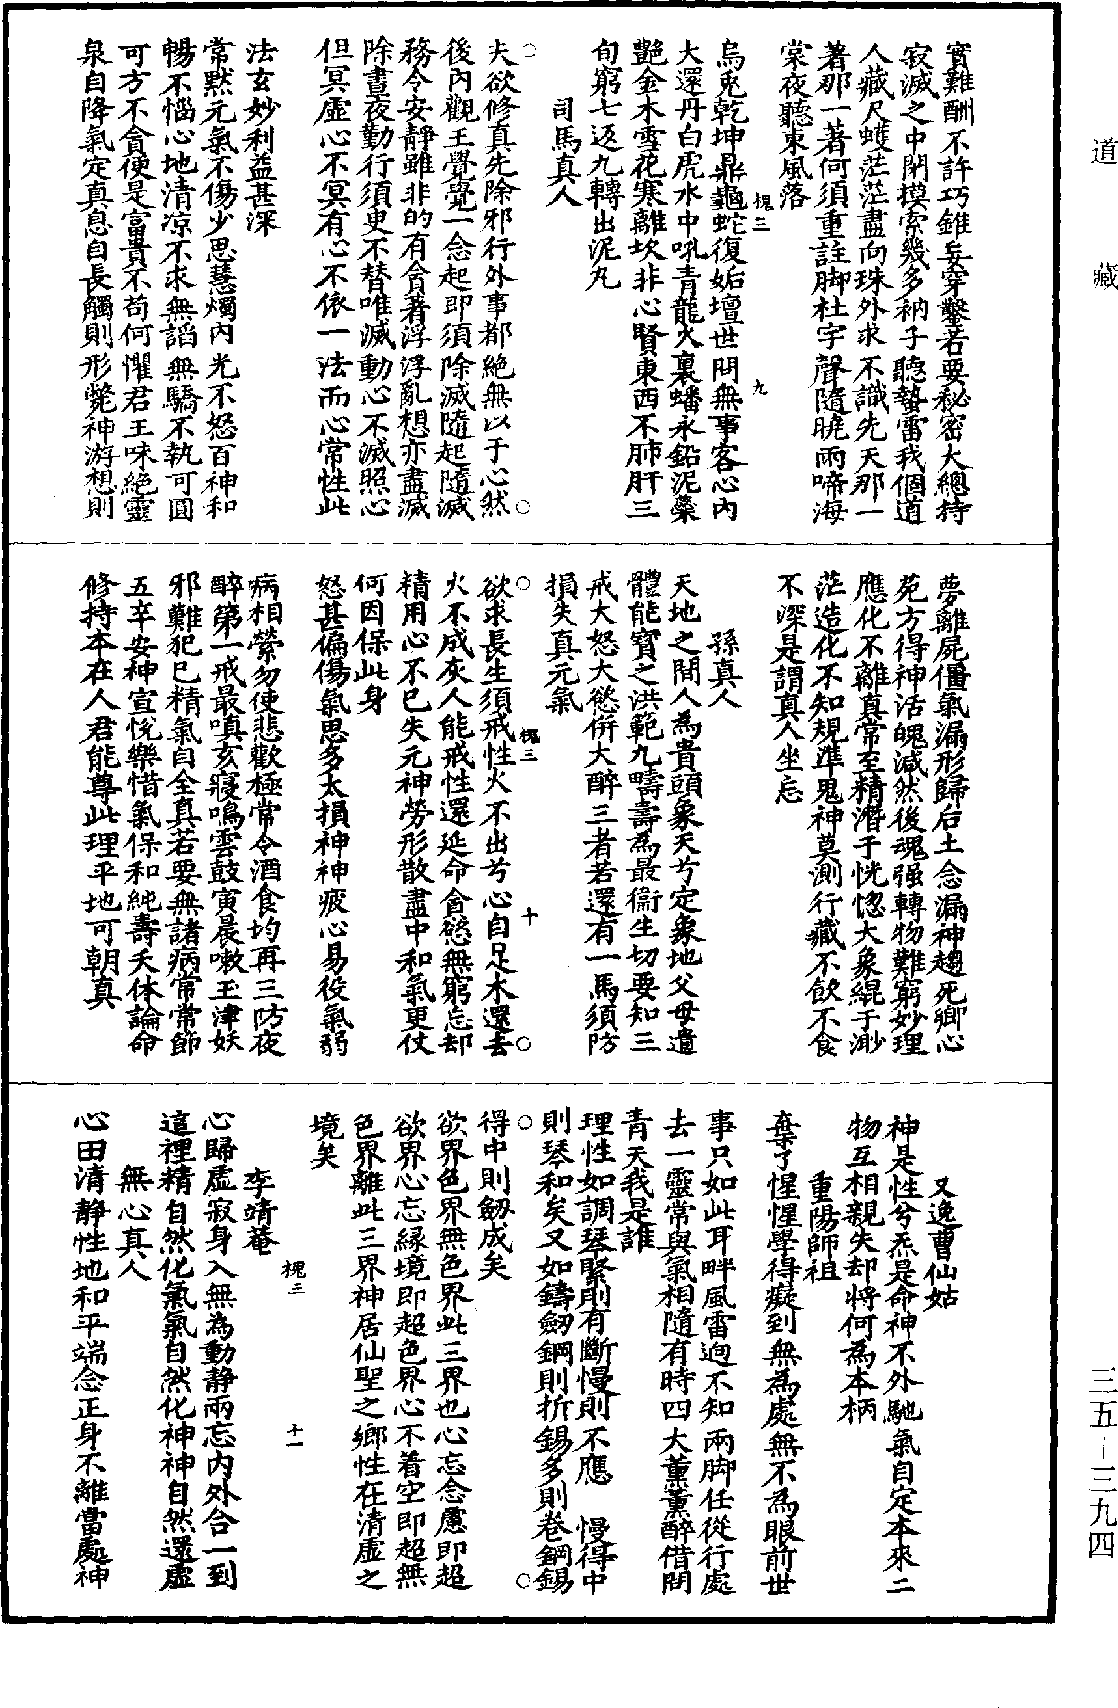 道藏
實難酬不許巧錐妄穿鑿若要秘密大總持
寂滅之中閒摸索幾多衲子聽蟄雷我個道
人藏尺蠖茫茫盡向珠外求不識先天那一
著那一著何須重註脚杜宇聲隨曉雨啼海
棠夜聽東風落
槐三
九
烏兎乾坤鼎龜蛇復姤壇世間無事客心內
大還丹白虎水中吼青龍火裏蟠汞鉛泥蘂
艷金木雪花寒離坎非心腎東西不肺肝三
旬窮七返九轉出泥丸
司馬真人
夫欲修真先除邪行外事都絶無以于心然
後內觀王覺覺一念起即須除滅隨起隨滅
務令安靜雖非的有貪著浮浮亂想亦盡滅
除晝夜勤行須臾不替唯滅動心不滅照心
但冥虛心不冥有心不依一法而心常性此
法玄妙利益甚深
常黙元氣不傷少思慧燭內光不怒百神和
暢不惱心地清凉不求無諂無驕不執可圓
可方不貪便是富貴不苟何懼君王味絶靈
泉自降氣定真息自長觸則形斃神游想則
夢離屍僵氣漏形歸后土念漏神趨死鄉心
死方得神活魄滅然後魂強轉物難窮妙理
應化不離真常至精潛于恍惚大象緄于渺
茫造化不知規準鬼神莫測行藏不飲不食
不深是謂真人坐忘
孫真人
天地之間人為貴頭象天兮定象地父母遺
體能寳之洪範九疇壽為最衞生切要知三
戒大怒大慾併大醉三者若還有一焉須防
損失真元氣
槐三
十
欲求長生須戒性火不出兮心自足木還去
火不成灰人能戒性還延命貪慾無窮忘却
精用心不已失元神勞形散盡中和氣更仗
何因保此身
怒甚偏傷氣思多太損神神疲心易役氣弱
病相縈勿使悲歡極常令酒食均再三防夜
醉第一戒晨嗔亥寢鳴雲鼓寅晨嗽玉津妖
邪難犯已精氣自全真若要無諸病常常節
五辛安神宣悅樂惜氣保和純壽夭休論命
修持本在人君能尊此理平地可朝真
又逸曹仙姑
神是性兮炁是命神不外馳氣自定本來二
物互相親失却將何為本柄
重陽師祖
棄了惺惺學得癡到無為處無不為眼前世
事只如此耳畔風雷逈不知兩脚任從行處
去一靈常與氣相隨有時四大薰薰醉借問
青天我是誰
理性如調琴緊則有斷慢則不應　慢得中
則琴和矣又如鑄劒鋼則折錫多則卷鋼錫
得中則劒成矣
欲界色界無色界此三界也心忘念慮即超
欲界心忘緣境即超色界心不着空即超無
色界離此三界神居仙聖之鄉性在清虛之
境矣
槐三
十一
李靖菴
心歸虛寂身入無為動靜兩忘內外合一到
這裡精自然化氣氣自然化神神自然還虛
無心真人
心田清靜性地和平端念正身不離當處神
三五–三九四